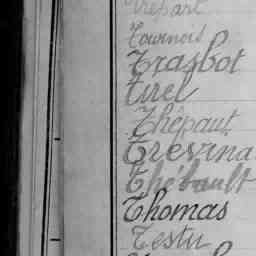 Trépart
Tournois
Trasbot
Tirel
Thépaut
Trevina
Thébault
Thomas
Testu